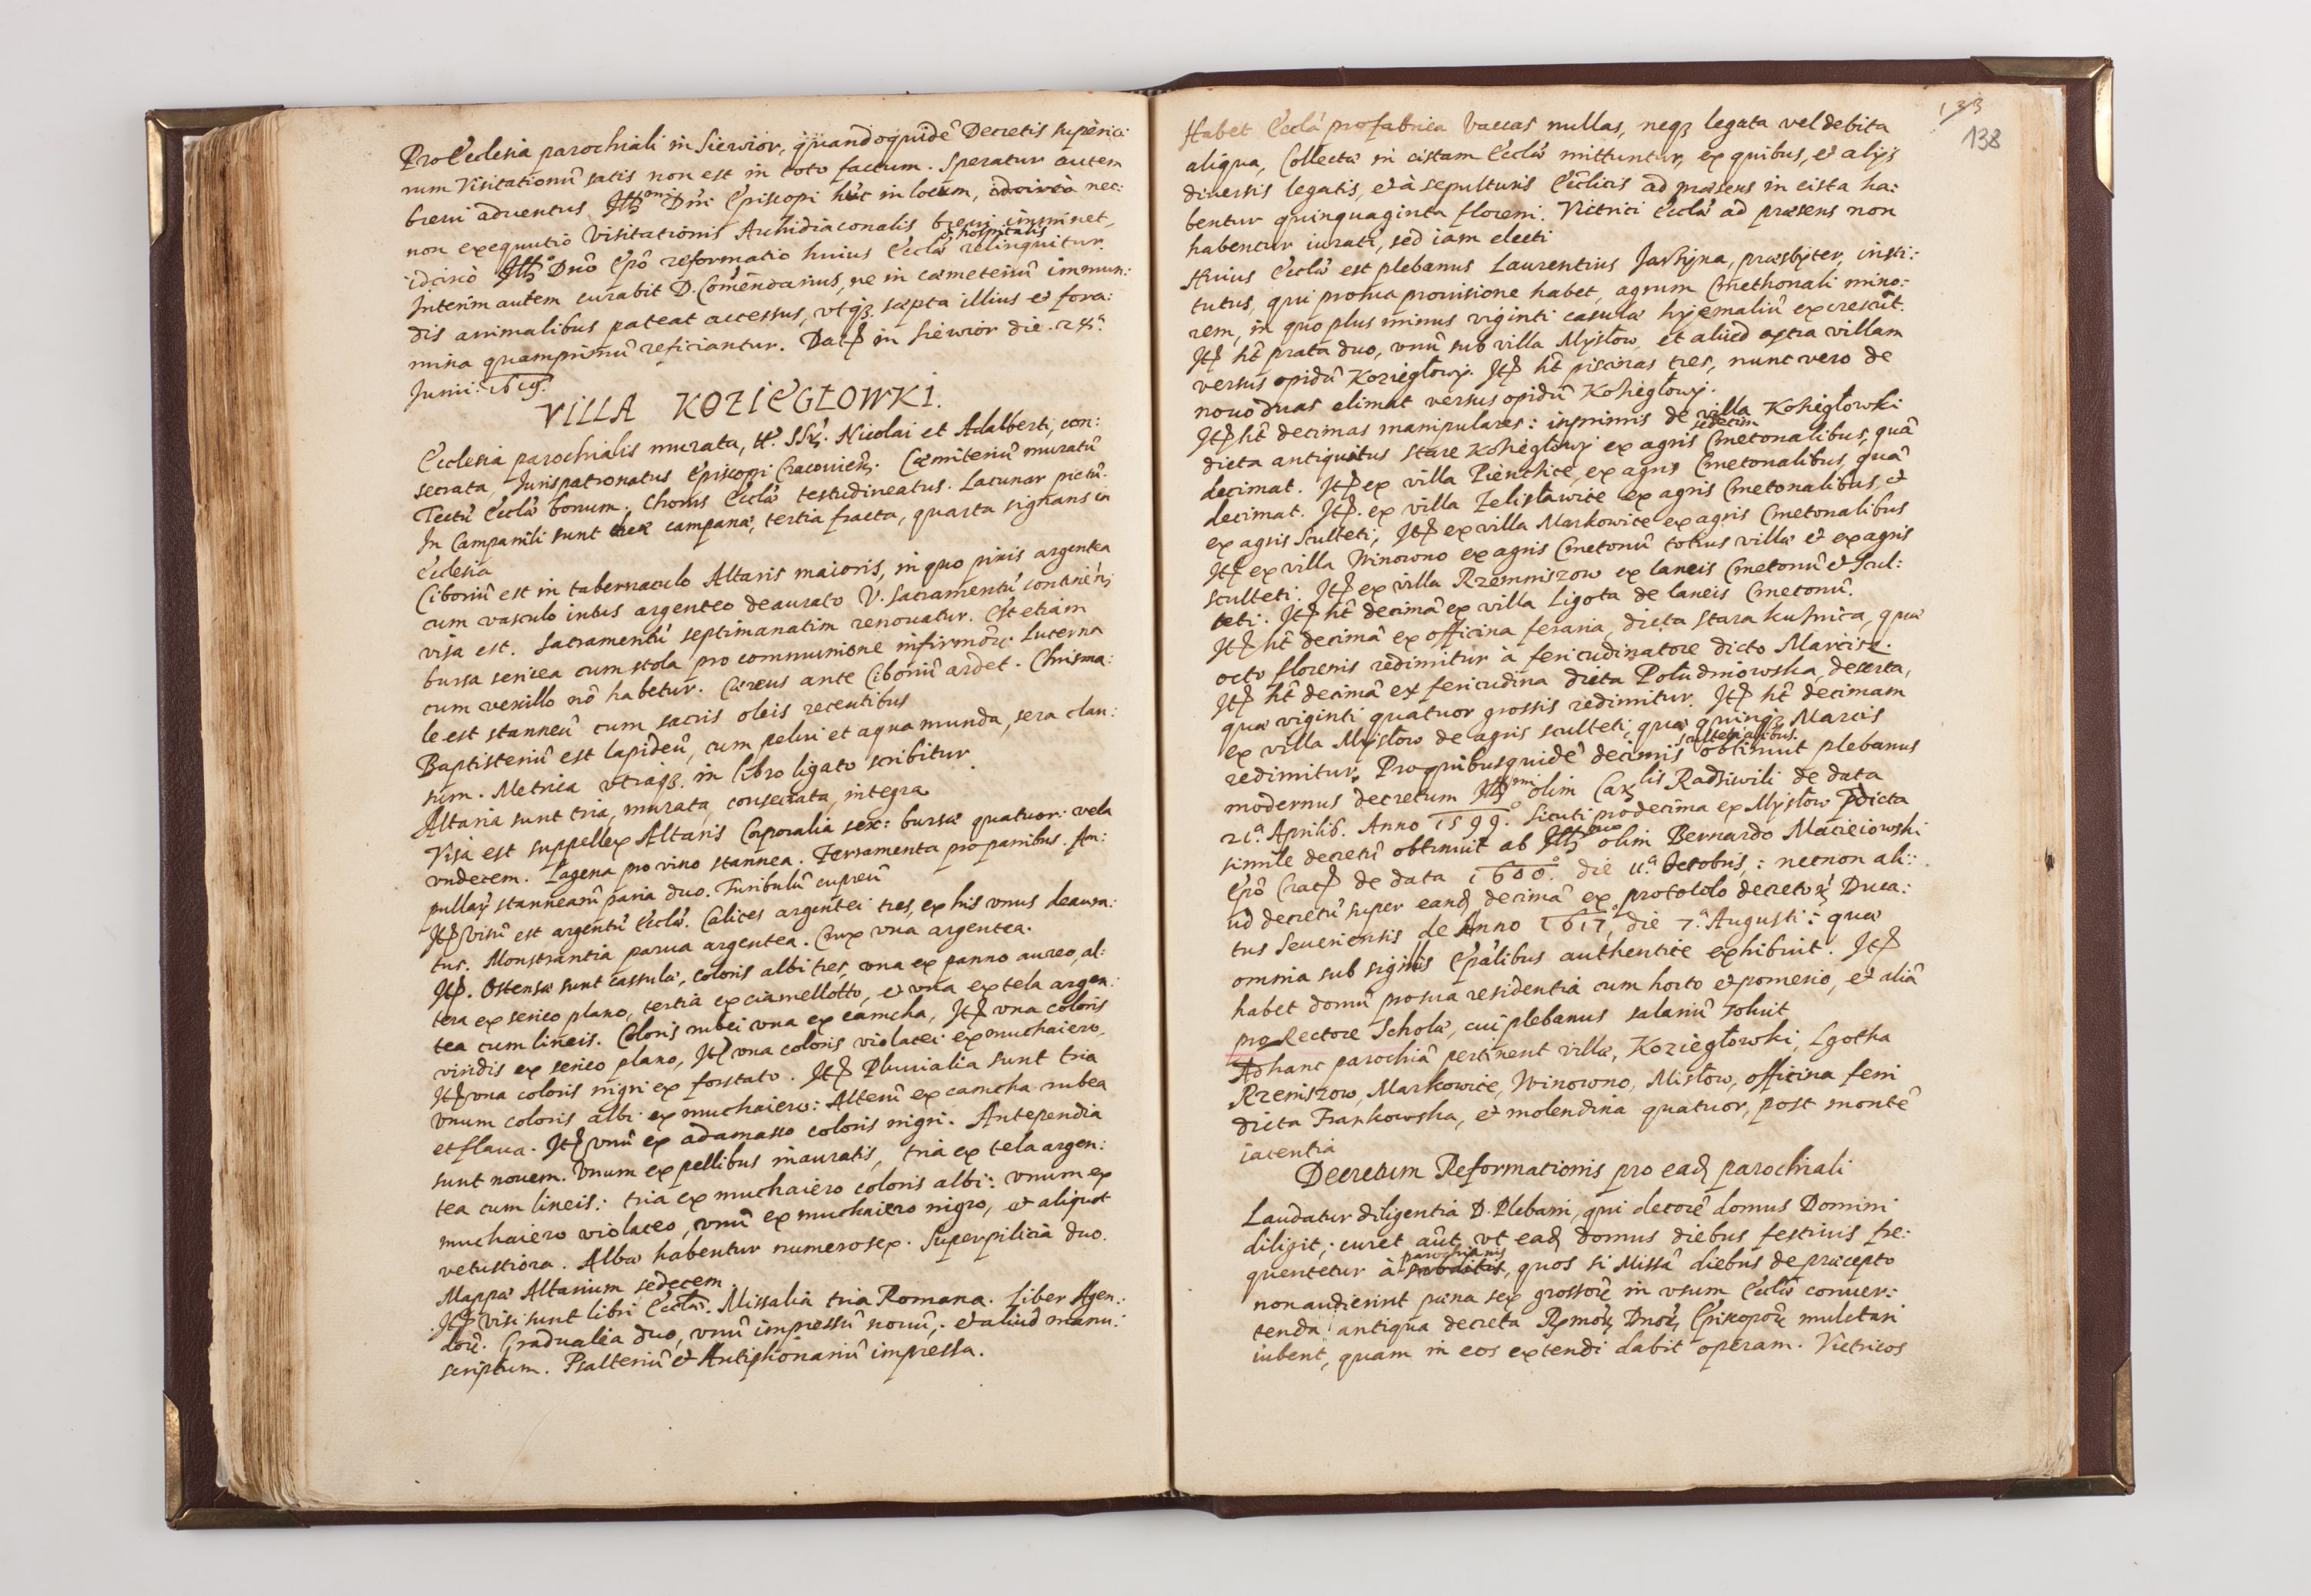 Pro Ecclesia parochiali in Siewior, quandoquidē Decretis superio:
rum Visitationū satis non est in toto factum. Speratur autem
breui aduentus Illmi Dni Episcopi huc in locum, nec:
non exequutio Visitationis Archidiaconalis breui imminet,
et hospitalis
idcirco Illo Dnō Epō reformatio huius Ecclæ relinquitur.
Interim autem curabit D. Comēndarius, ne in cæmeteriū immun:
dis animalibus pateat accessus, vtq₃ sæpta illius et fora:
mina quamprimū reficiantur. Dat in Siewior die
Junii. 1619.
VILLA KOZIEGŁOWKI.
Ecclesia parochialis murata, tt. SS. Nicolai et Adalberti, con:
secrata Jurispatronatus Episcopi Cracouien. Cæmiteriū muratū
Tectū Ecclæ bonum. Chorus Ecclæ testudineatus. Lacunar pictū.
In Campanili sunt tres campanæ, tertia fracta, quarta signans in
Ecclesia
Ciboriū est in tabernaculo Altaris maioris, in quo pixis argentea
cum vasculo intus argenteo deaurato V. Sacramentū continēs
visa est. Sacramentū septimanatim renouatur. Est etiam
bursa sericea cum stola pro communione infirmorū. Lucerna
cum vexillo nō habetur. Cæreus ante Ciboriū ardet. Chrisma:
le est stanneū cum sacris oleis recentibus
Baptisteriū est lapideū, cum pelui et aqua munda, sera clau:
sum. Metrica vtraq₃ in libro ligato scribitur.
Altaria sunt tria, murata, consecrata, integra
Visa est suppellex Altaris Corporalia sex: bursæ quatuor: vela
vndecem. Lagena pro vino stannea. Ferramenta pro panibus. Am:
pullarū stannearū paria duo. Turibulū cupreū
Itē visū est argentū Ecclæ. Calices argentei tres, ex his vnus deaura:
tus. Monstrantia parua argentea. Crux vna argentea.
Itē. Ostensæ sunt cassulæ, coloris albi tres, vna ex panno aureo, al:
tera ex serico plano, tertia ex ciamellotto, et vna ex tela argen:
tea cum lineis. Coloris rubei vna ex camcha, Itē vna coloris
viridis ex serico plano, Itē vna coloris violacei ex muchaiero,
Itē vna coloris nigri ex forstato. Itē Pluuialia sunt tria
vnum coloris albi ex muchaiero: Alterū ex camcha rubea
et flaua. Itē vnū ex adamasco coloris nigri. Antependia
sunt nouem. Vnum ex pellibus inauratis, tria ex tela argen:
tea cum lineis: tria ex muchaiero coloris albi: vnum ex
muchaiero violaceo, vnū ex muchaiero nigro, et aliquot
vetustiora. Albæ habentur numero sex. Superpilicia duo.
Mappæ Altarium sedecem.
Itē visi sunt libri Ecclæ. Missalia tria Romana. Liber Agen:
dorū. Gradualia duo, vnū impressū nouū, et aliud manu:
scriptum. Psalteriū et Antiphonariū impressa.
133
138
Habet Ecclā pro fabrica vaccas nullas, neq₃ legata vel debita
aliqua, Collectæ in cistam Ecclæ mittuntur, ex quibus, et alijs
diuersis legatis, et à sepulturis Ecclicis ad præsens in cista ha:
bentur quinquaginta floreni. Vitrici Ecclæ ad præsens non
habentur iurati, sed iam electi
Huius Ecclæ est plebanus Laurentius Jarhyna, præsbyter, insti:
tutus, qui pro sua prouisione habet, agrum Cmethonali mino:
rem, in quo plus minus viginti casulæ hyemaliū excrescūt.
Itē ht prata duo, vnū sub villa Mysłow, et aliud extra villam
versus opidū Koziegłowy. Itē ht piscinas tres, nunc vero de
nouo duas elimat versus opidū Kohiegłowy.
Itē ht decimas manipulares: inprimis de villa Kohiegłowki
sedecim
dicta antiquitus Stare Kohiegłowy ex agris Cmetonalibus, quā
decimat. Itē ex villa Pienchice, ex agris Cmetonalibus, quā
decimat. Itē. ex villa Zelisławice ex agris Cmetonalibus, et
ex agris Sculteti, Itē ex villa Markowice ex agris Cmetonalibus
Itē ex villa Winowno ex agris Cmetonū totius villæ et ex agris
sculteti. Itē ex villa Rzemniszow ex laneis Cmetonū et Scul:
teti. Itē ht decimā ex villa Ligota de laneis Cmetonū.
Itē ht decimā ex officina feraria, dicta stara kuhnica, quæ
octo florenis redimitur à fericudinatore dicto Marcisz.
Itē ht decimā ex fericudina dicta Południowska, deserta,
quæ viginti quatuor grossis redimitur. Itē ht decimam
ex villa Mysłow de agris sculteti, quæ quinq₃ Marcis
scultetialibus.
redimitur. Pro quibusquidē decimis obtinuit plebanus
modernus decretum Illmi olim Carlis Radziwili de data
21ª Aprilis. Anno 1599. Sicuti pro decima ex Mysłow pdicta
simile decretū obtinuit ab Illmo olim Bernardo Macieiowski
Epō Crac de data 1600. die 11ª Octobris; necnon ali:
ud decretū super eand decimā ex protocolo decretorū Duca:
tus Seueriensis de Anno 1617, die 7ª Augusti: quæ
omnia sub sigillis Epalibus authentice exhibuit. Itē
habet domū pro sua residentia cum horto et pomerio, et aliā
pro Rectore Scholæ, cui plebanus salariū soluit
Ad hanc parochiā pertinent villæ, Koziegłowki, Lgotha
Rzeniszow, Markowice, Winowno, Misłow, officina ferri
dicta Frankowska, et molendina quatuor, post montē
iacentia
Decretum Reformationis pro ead parochiali
Laudatur diligentia D. Plebani, qui decorē domus Domini
diligit; curet aūt vt ead domus diebus festiuis fre:
parochianis
quentetur à subditis, quos si Missā diebus de præcepto
non audierint pæna sex grossorū in vsum Ecclæ conuer:
tenda antiqua decreta Rmorū Dnorū Episcoporū mulctari
iubent, quam in eos extendi dabit operam. Victricos